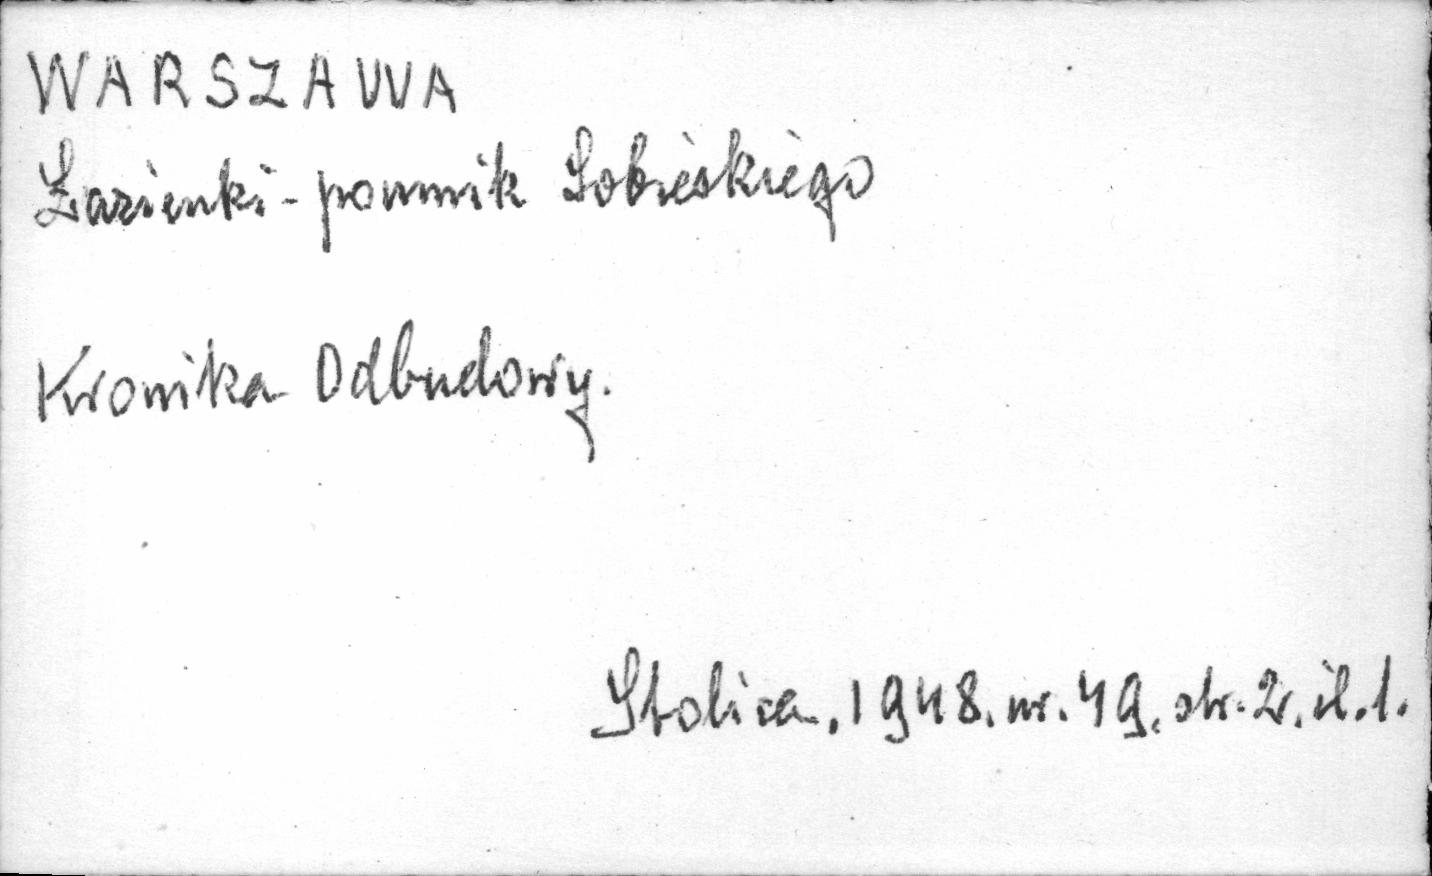 WARSZAWA
Łazienki - pomnik Sobieskiego
Kronika Odbudowy.
Stolica, 1948. nr. 49, str. 2, il. 1.